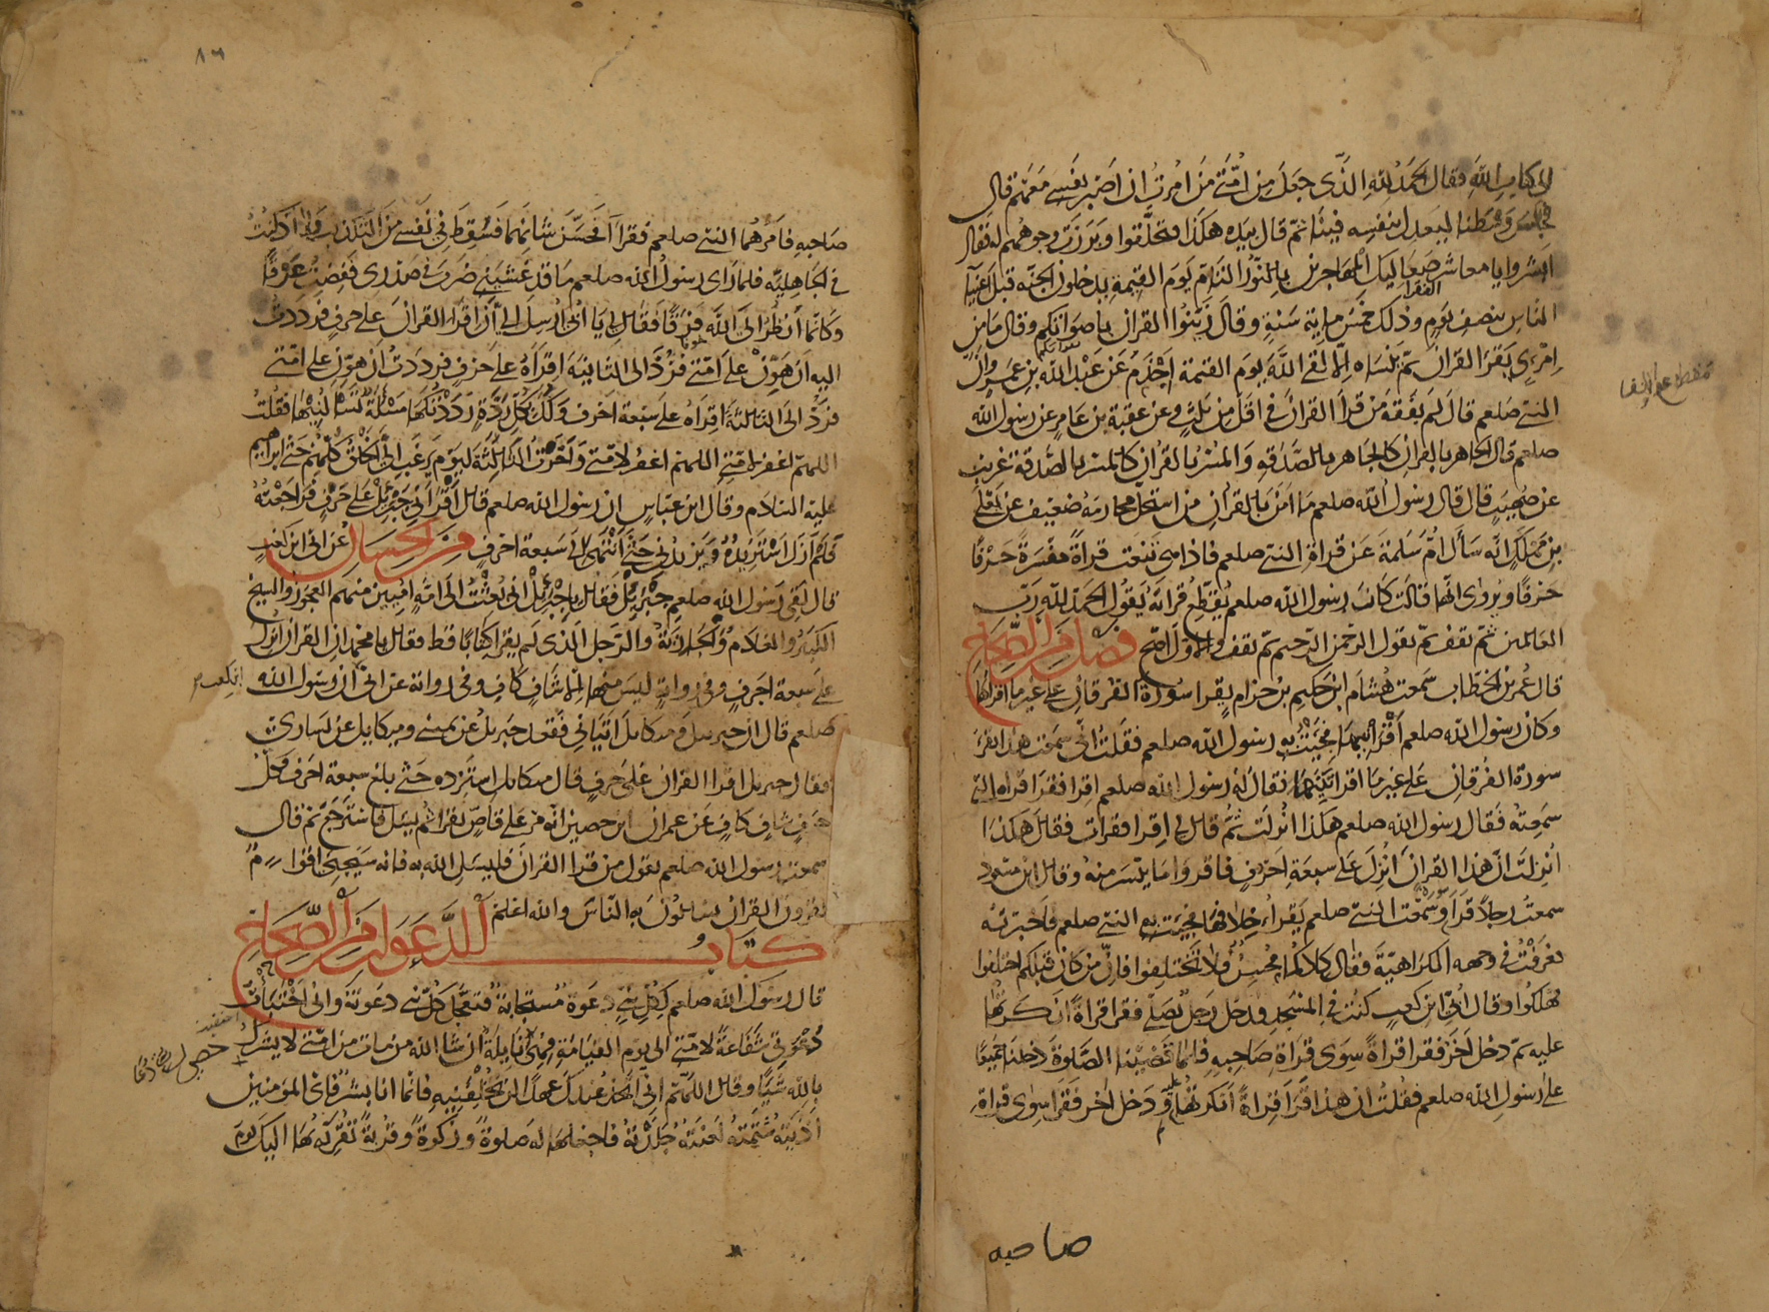 الى كتاب الله فقال الحمد لله الذى جعل من امتى من امرت ان اصبر نفسى معهم قال
فجلس وسطنا ليعدل بنفسه فينا ثم قال بيده هكذا فتحلقوا وبرزت وجوههم له فقال
ابشروا يا معاشر صعاليك المهاجرين بالنور التام يوم القيمة يدخلون الجنة قبل اغنيآ
الفقرا
الناس بنصف يوم وذلك خمس ماية سنة وقال زينوا القران باصواتكم وقال ما من
امرىء يقرا القران ثم ينساه الا لقى الله يوم القيمة اجذم عن عبد الله بن عمرو ان
النبى صلعم قال لم يفقه من قرا القران فى اقل من ثلث وعن عقبة بن عامر عن رسول الله
صلعم قال الجاهر بالقران كالجاهر بالصدقة والمسر بالقران كالمسر بالصدقة غريب
عن صهيب قال قال رسول الله صلعم ما امن بالقران من استحل محارمه ضعيف عن يعلى
بن مملك انه سال ام سلمة عن قراة النبى صلعم فاذا هى تنعت قراة مفسرة حرفا
حرفا ويروى انها قالت كان رسول الله صلعم يقطع قراته يقول الحمد لله رب
العالمين ثم يقف ثم يقول الرحمن الرحيم ثم يقف والاول اصح فصل من الصحاح
قال عمر بن الخطاب سمعت هشام ابن حكيم بن حزام يقرا سورة الفرقان على غير ما اقراها
وكان رسول الله صلعم اقرانيها فجئت به رسول الله صلعم فقلت انى سمعت هذا يقرا
سورة الفرقان على غير ما اقراتنيها فقال له رسول الله صلعم اقرا فقرا قراه التى
سمعته فقال رسول الله صلعم هكذا انزلت ثم قال لى اقرا فقرات فقال هكذا
انزلت ان هذا القران انزل على سبعة احرف فاقروا ما يتسر منه وقال ابن مسعود
سمعت رجلا قرا وسمعت النبى صلعم يقرا خلافها فجئت به النبى صلعم فاخبرته
فعرفت فى وجهه الكراهية فقال كلاكما محسن ولا تختلفوا فان من كان قبلكم اختلفوا
فهلكوا وقال ابى ابن كعب كنت فى المسجد فدخل رجل يصلى فقرا قراة انكرتها
عليه ثم دخل اخر فقرا قراة سوى قراة صاحبه فلما قضينا الصلوة دخلنا جميعا
على رسول الله صلعم فقلت ان هذا قرا قراة انكرتها عليه ودخل اخر فقرا سوى قراة
صاحبه
٨٦
صاحبه فامرهما النبى صلعم فقرا فحسن شانهما فسقط فى نفسى من التكذيب ولا اذ كنت
فى الجاهلية فلما راى رسول الله صلعم ما قد غشينى ضرب فى صدرى ففضت عرقا
وكانما انظر الى الله فرقا فقال لى يا ابى ارسل الى ان اقرا القران على حرف فرددت
اليه ان هون على امتى فرد الى الثانية اقراه على حرف فرددت ان هون على امتى
فرد الى الثالثة اقراه على سبعة احرف ولك بكل ردة رددتكها مسئلة تسالنيها فقلت
اللهم اغفر لامتى اللهم اغفر لامتى واخرت الثالثة ليوم يرغب الى الخلق كلهم حتى ابراهيم
عليه السلام وقال ابن عباس ان رسول الله صلعم قال اقرانى جبرئل على حرف فراجعته
فلم ازل استزيده ويزيدنى حتى انتهى الى سبعة احرف من الحسان عن ابى ابن كعب
قال لقى رسول الله صلعم جبرئل فقال يا جبرئل انى بعثت الى امة اميين منهم العجوز والشيخ
الكبير والغلام والجارية والرجل الذى لم يقرا كتابا قط فقال يا محمد ان القران انزل
على سبعة احرف وفى رواية ليس منها الا شاف كاف وفى رواية عن ابى ان رسول الله
صلعم قال ان جبريل وميكايل اتيانى فقعد جبريل عن يمينى وميكايل عن يسارى
فقال جبريل اقرا القران على حرف قال ميكايل استزده حتى بلغ سبعة احرف فكل
حرف شاف كاف عن عمران ابن حصين انه مر على قاص يقرا ثم يسل فاسترجع ثم قال
سمعت رسول الله صلعم يقول من قرا القران فليسل الله به فانه سيجئ اقوام
يقرون القران يسالون به الناس والله اعلم
كتاب الدعوات من الصحاح
قال رسول الله صلعم لكل نبى دعوة مستجابة فتعجل كل نبى دعوته وانى اختبأت
دعوتى شفاعة لامتى الى يوم القيامة فهى نايلة ان شا الله من مات من امتى لا يشرك
بالله شيا وقال اللهم انى اتخذ عندك عهدا لن تخلفنيه فانما انا بشر فاى المومنين
اذيته شتمته لعنته جلدته فاجعلها له صلوة وزكوة وقربة تقربه بها اليك يوم